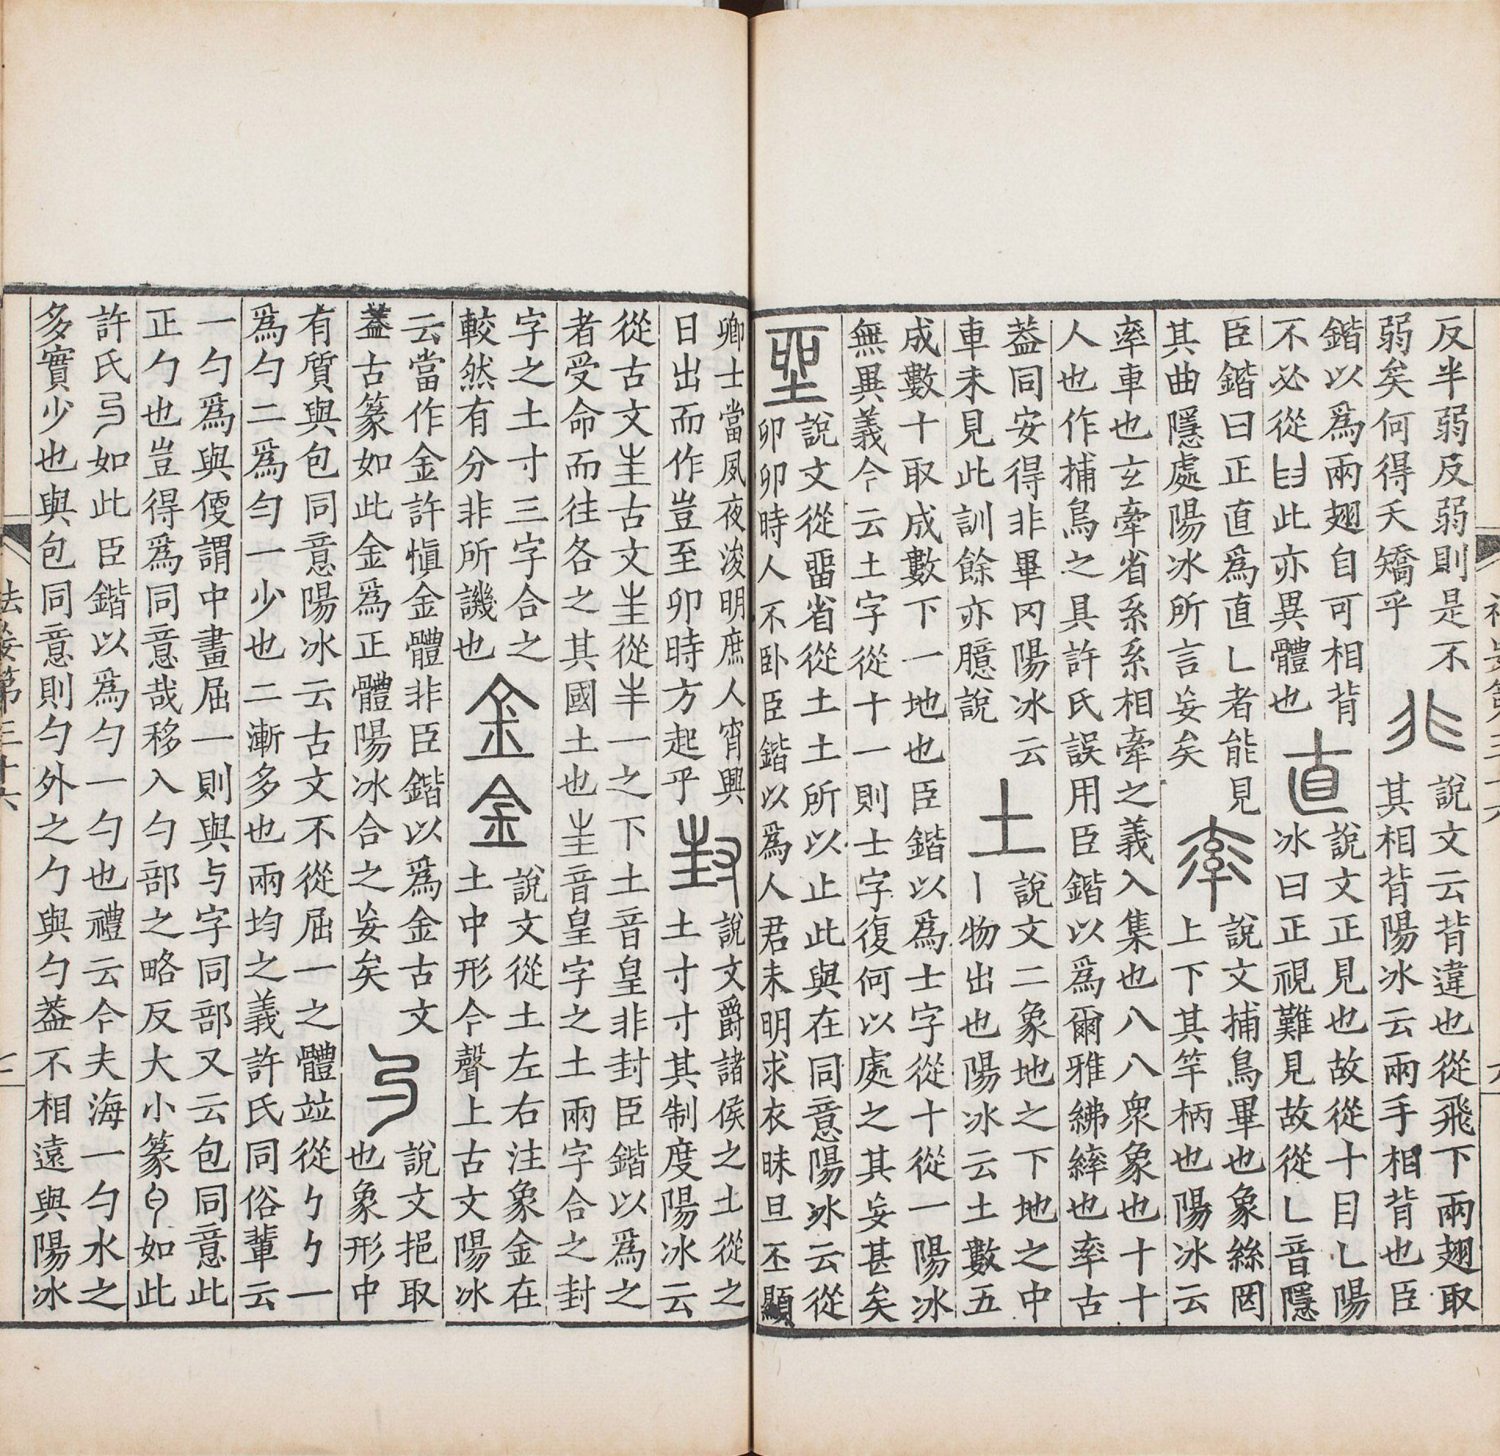 反半弱反弱則是不
弱矣何得夭矯乎
非
說文云背違也從飛下兩翅取
其相背陽冰云兩手相背也臣
鍇以爲兩翅自可相背
不必從此亦異體也
直
說文正見也故從十目乚陽
冰曰正視難見故從乚音隱
臣鍇曰正直爲直乚者能見
其曲隱處陽冰所言妄矣
率
說文捕鳥畢也象絲罔
上下其竿柄也陽冰云
率車也玄牽省系系相牽之義入集也八八衆象也十十
人也作捕鳥之具許氏誤用臣鍇以爲爾雅紼繂也率古
葢同安得非畢冈陽冰云
車未見此訓餘亦臆說
土
說文二象地之下地之中
丨物出也陽冰云土數五
成數十取成數下一地也臣鍇以爲士字從十從一陽冰
無異義今云土字從十一則士字復何以處之其妄甚矣
坐
說文從畱省從土土所以止此與在同意陽冰云從
卯卯時人不卧臣鍇以爲人君未明求衣昧旦丕顯
卿士當夙夜浚明庶人宵興
日出而作豈至卯時方起乎
封
說文爵諸侯之土從之
土寸寸其制度陽冰云
從古文𡉚古文𡉚從半一之下土音皇非封臣鍇以爲之
者受命而往各之其國土也𡉚音皇字之土兩字合之封
字之土寸三字合之
較然有分非所譏也
金金
說文從土左右注象金在
土中形今聲上古文陽冰
云當作金許愼金體非臣鍇以爲金古文
葢古篆如此金爲正體陽冰合之妄矣
与
說文挹取
也象形中
有質與包同意陽冰云古文不從屈一之體竝從勹勹一
爲勺二爲勻一少也二漸多也兩均之義許氏同俗輩云
一勺爲與謂中畫屈一則與与字同部又云包同意此
正勺也豈得爲同意哉移入勺部之略反大小篆如此
許氏与如此臣鍇以爲勺一勺也禮云今夫海一勺水之
多實少也與包同意則勺外之勹與勺葢不相遠與陽冰